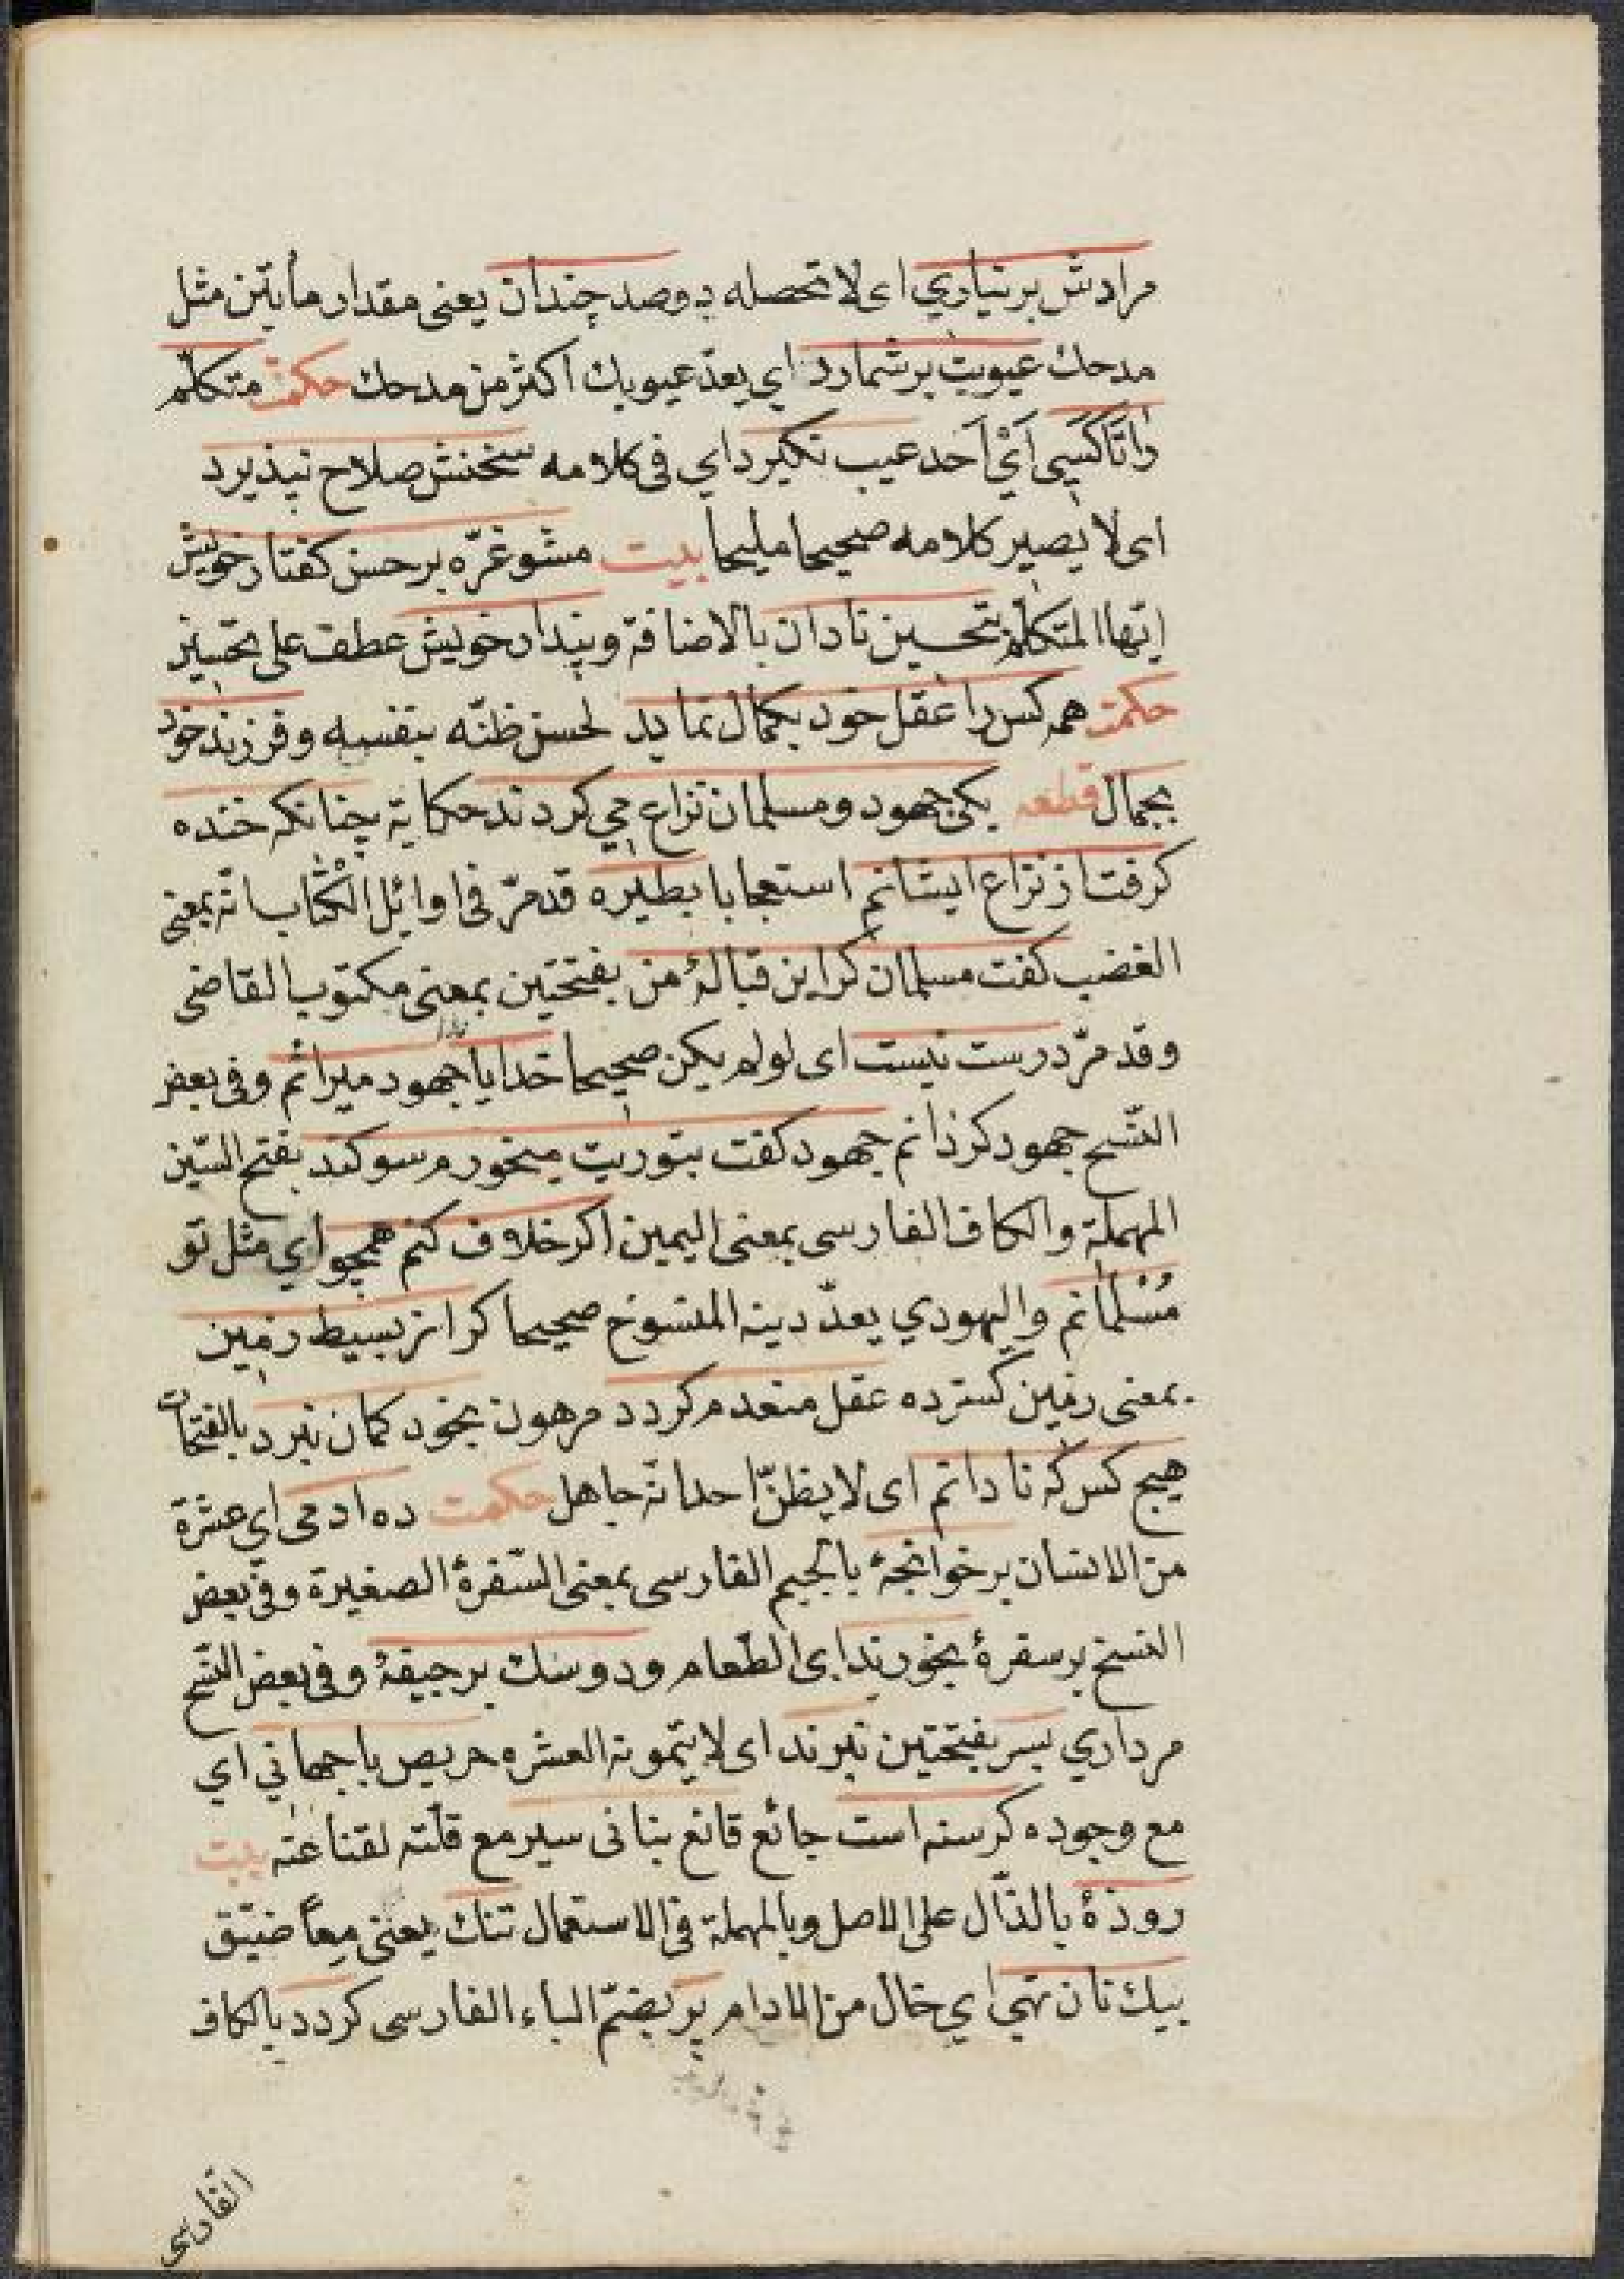 مرادش برنیاري ای لا تحصله دوصد چندان یعنی مقدار مأیتین مثل
مدحك عیوبت برشمارد اي یعدّ عیوبك اکثر من مدحك حکمت متکلّم
راتا کسی اَيْ اَحد عیب نکیرد اي فی کلامه سخنش صلاح نپذیرد
ای لا یصیر کلامه صحیحا ملیحا بیت مشو غرّه بر حسن کفتار خویش
ایّها المتکلّم بتحسین نادان بالاضافة وپندار خویش عطف علی تحسین
حکمت همه کس را عقل خود بکمال نماید لحسن ظنّه بنفسه وفرزند خود
بجمال قطعه یکی جهود ومسلمان نزاع مي کردند حکایة چنانکه خنده
کرفت از نزاع ایشانم استعجابا بطیره قد مرّ فی اوائل الکتاب انّه بمعنی
الغضب کفت مسلمان کر این قبالۀ من بفتحتین بمعنی مکتوب القاضی
وقد مرّ درست نیست ای لو لم یکن صحیحا خدایا جهود میرانم وفی بعض
النّسخ جهود کردانم جهود کفت بتوریت میخورم سوکند بفتح السّین
المهملة والکاف الفارسی بمعنی الیمین اکر خلاف کنم همچو اي مثل تو
مُسْلمانم والیهودي یعدّ دینه المنسوخ صحیحا کر از بسیط زمین
بمعنی زمین کسترده عقل منعدم کردد مرهون بخود کمان نبرد بالفتحات
هیچ کس که نادانم ای لا یظنّ احد انّه جاهل حکمت ده ادمی اي عشرة
من الانسان بر خوانچۀ بالجیم الفارسی بمعنی السّفرة الصغیرة وفی بعض
النسخ بر سفرۀ بخورند ای الطّعام ودو سك بر جیفۀ وفی بعض النّسخ
مرداري بسر بفتحتین نبرند ای لا یتمونه العشره حریص با جهاني اي
مع وجوده کرسنه است جائع قانع بنانی سیر مع قلّته لقناعته بیت
روذۀ بالذّال علی الاصل وبالمهملة فی الاستعمال تنك یعنی مِعاً ضیّق
بیك نان تهي اي خال من الادام پر بضمّ الباء الفارسی کردد بالکاف
الفارسی